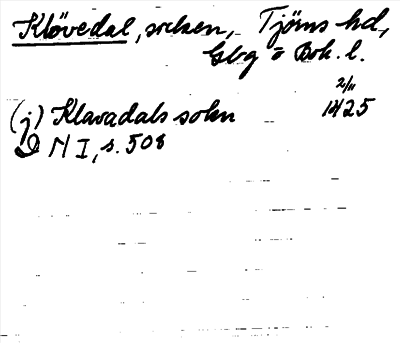 Klövedal, socken, Tjörns hd,
Gbg o Boh. l.
2/11
(j) Klavadals sokn 1425
DN I, s. 508